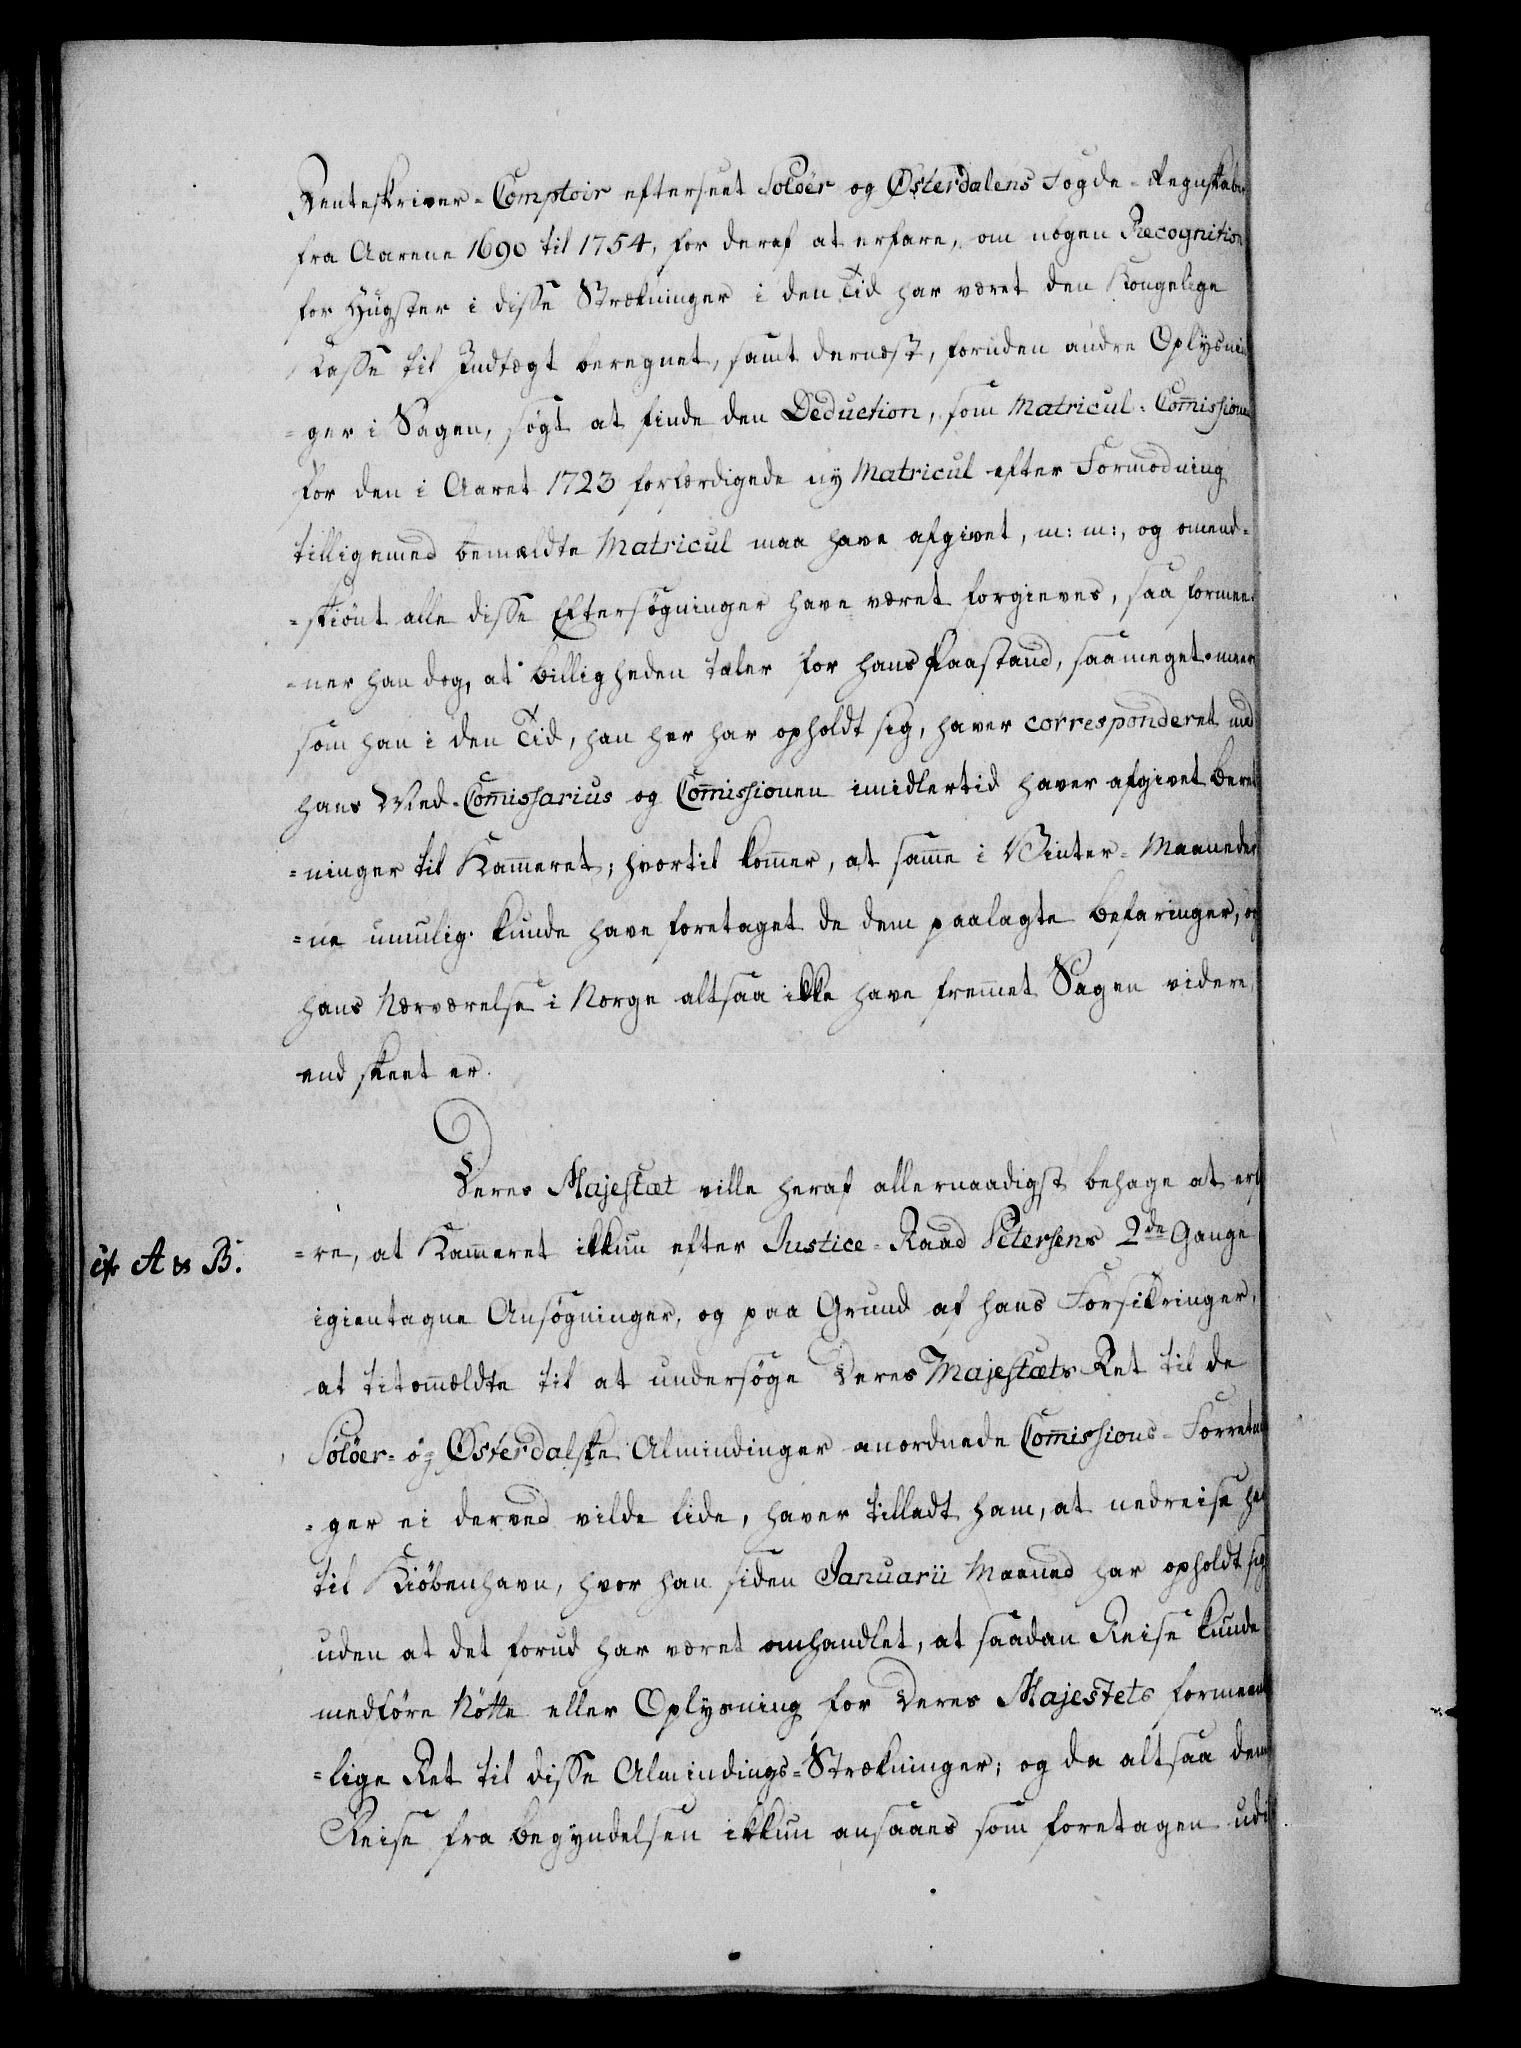 Renteskriver-Comptoir efterseet Soløer og Østerdalens Fogde-Regnskaber
fra Aarene 1690 til 1754, for deraf at erfare, om nogen Recognition
for Hugster i disse Strækninger i den Tid har været den Kongelige
Casse til Indtægt beregnet, samt dernæst, foruden andre Oplysnin
=ger i Sagen, søgt at finde den Deduction, som Matricul-Com̅issionen
for den i Aaret 1723 forfærdigede ny Matricul efter Formodning
tilligemed bemældte Matricul maa have afgivet, m: m:, og omend-
=skiønt alle disse Eftersøgninger have været forgieves, saa formee-
=ner han dog, at billigheden taler for hans Paastand, saameget meere
som han i den Tid, han her har opholdt sig, haver corresponderet med
hans Med-Com̅issarius og Com̅issionen imidlertid haver afgivet Beret
=ninger til Kam̅eret; hvortil kom̅er, at sam̅e i Vinter-Maaneder
=ne umulig kunde have foretaget de dem paalagte befaringer, og
hans Nærværelse i Norge altsaa ikke have frem̅et Sagen videre,
end skeet er.
Deres Majestæt ville heraf allernaadigst behage at erfa
=re, at Kam̅eret ikkun efter Justice-Raad Petersens 2de Gange
cfr A & B.
igientagne Ansøgninger, og paa Grund af hans Forsikringer,
at titom̅ældte til at undersøge Deres Majestæts Ret til de
Soløer- og Østerdalske Almindinger anordnede Com̅issions-Forretnin
=ger ei derved vilde lide, haver tilladt ham, at nedreise her
til Kiøbenhavn, hvor han siden Januarii Maaned har opholdt sig
uden at det forud har været omhandlet, at saadan Reise kunde
medføre Nøtte eller Oplysning for Deres Majestets formeent
=lige Ret til disse Almindings-Strækninger; og da altsaa denne
Reise fra begyndelsen ikkun ansaaes som foretagen udi